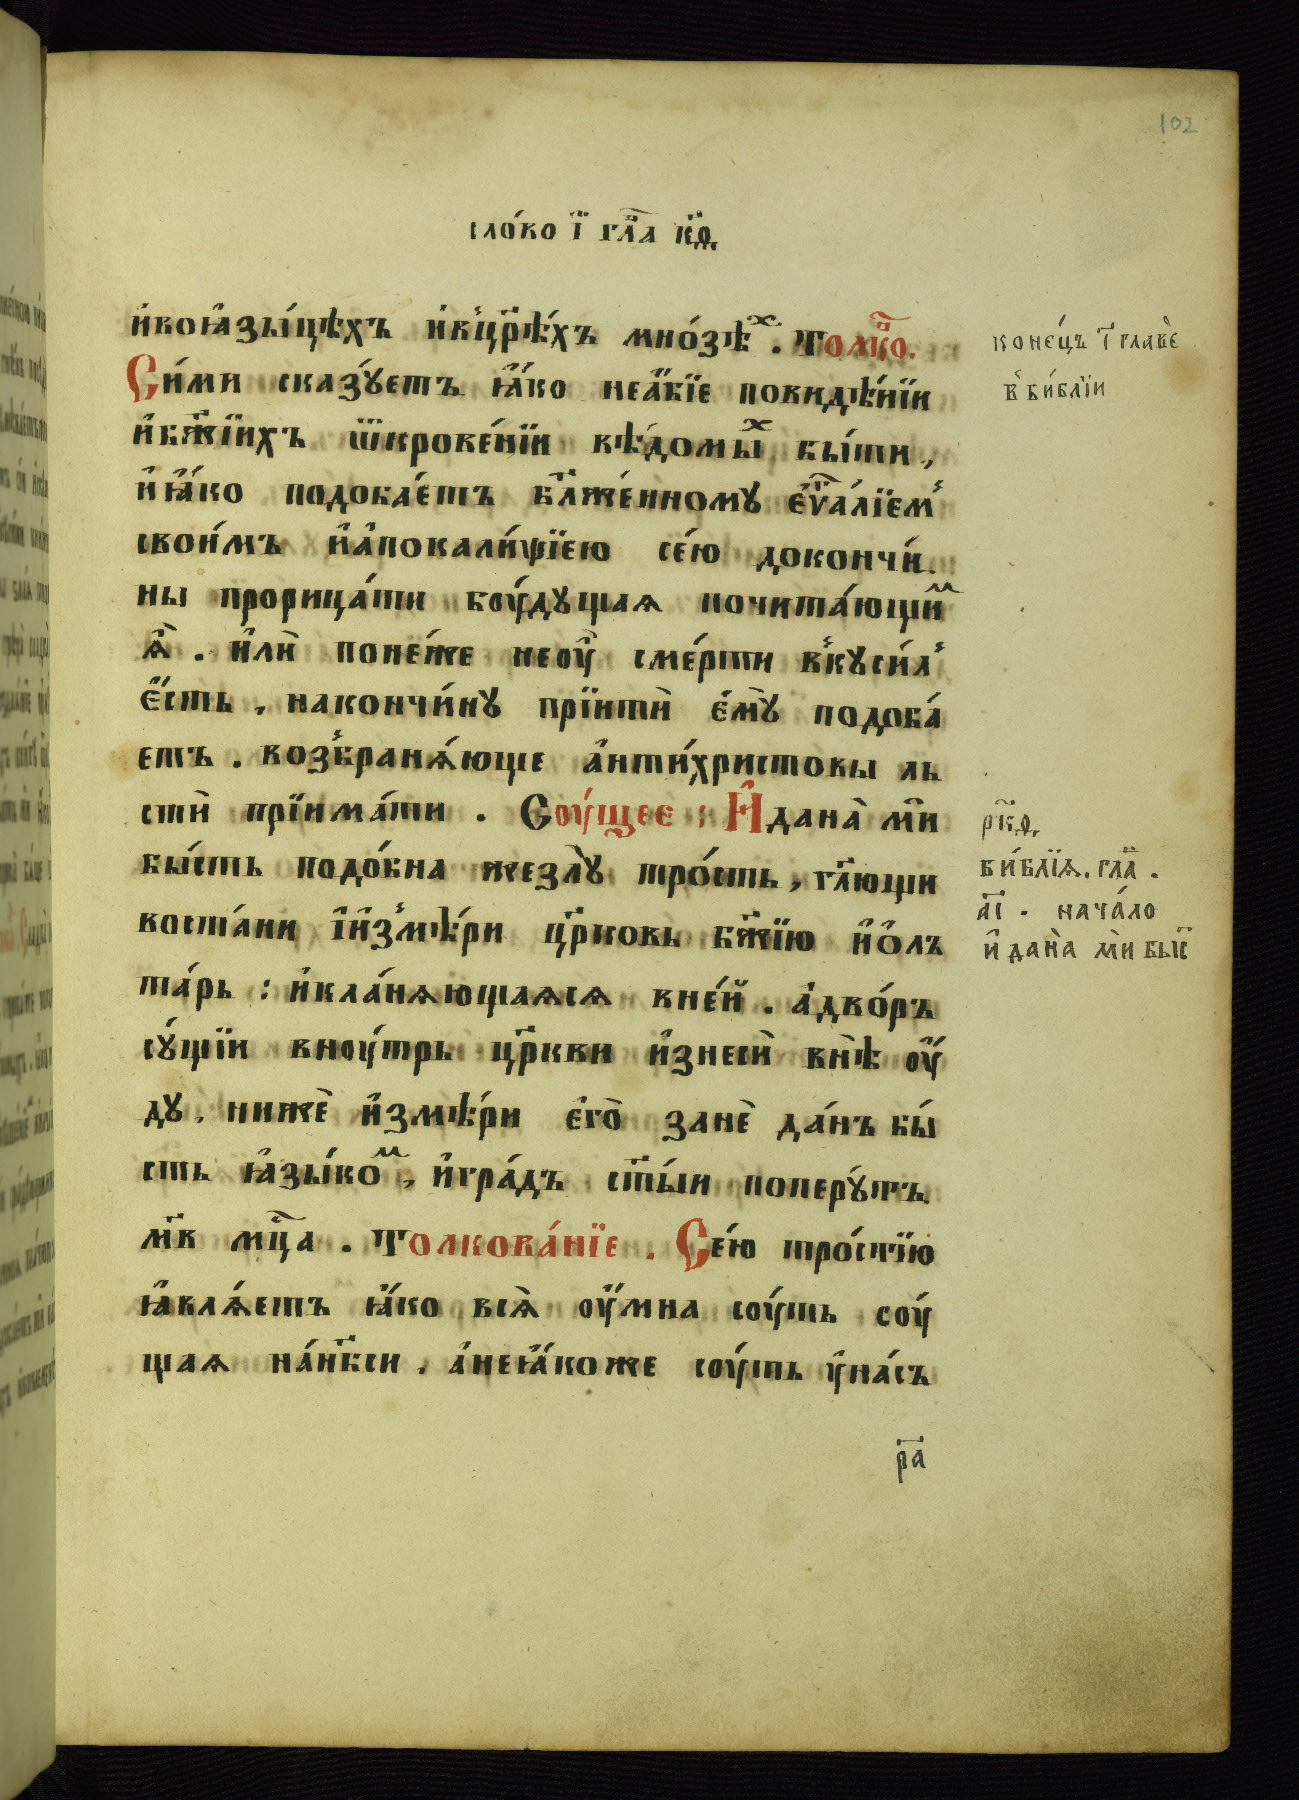 102
сло́во і҃ гл҃а к҃д
и҆воꙗ҆зы́цѣхъ и҆вцр҃ѣ́хъ мно́зѣх. Толко҃.
Си́ми сказꙋ́етъ ꙗ҆́ко неа҆́кїе повидѣ́нїи
и҆бж҃їихъ ѿкрове́нїи вѣ́домых бы́ти,
и҆ꙗ҆́ко подоба́етъ бл҃же́нному є҆ѵⷢ҇а́лїем
свои́мъ и҆а҆покали́ѱїею се́ю докончи́
ны прорица́ти бꙋ́дꙋщая почита́ющим
ѧ҆̀. и҆лѝ поне́же неоу҆̀ сме́рти вкꙋси́л
є҆́сть, накончи́нꙋ прїитѝ є҆мꙋ̀ подоба́
етъ. возбранѧ́юще а҆нти́христовы ль
стѝ прїима́ти. Соу́щее: И҆дана̀ мѝ
бы́сть подо́бна жезлꙋ̀ тро́сть, гл҃ющи
воста́ни і҆и҆змѣ́ри цр҃ковь бж҃їю и҆ѻ҆л
та́рь: и҆кла́нѧющаѧсѧ вне́й. а҆дво́ръ
сꙋ́щїи вноу́трь цр҃кви и҆знесѝ внѣ̀ оу҆́
дꙋ. нижѐ и҆змѣ́ри є҆го̀ занѐ да́нъ бы́
сть ꙗ҆зы́ком, и҆гра́дъ ст҃ы́и поперꙋ́тъ
м҃в мц҃а. Толкова́нїе. Се́ю тро́стїю
ꙗ҆влѧ́етъ ꙗ҆́ко всѧ̀ оу҆́мна соу́ть соу́
щаѧ на́нб҃си. а҆неꙗ҆́коже соу́ть у҆на́съ
р҃а
коне́цъ і҃ главѐ
в би́блїи
рк҃д
би́блїѧ. гл҃а.
а҃і. нача́ло
и҆ дана̀ мѝ быс҃